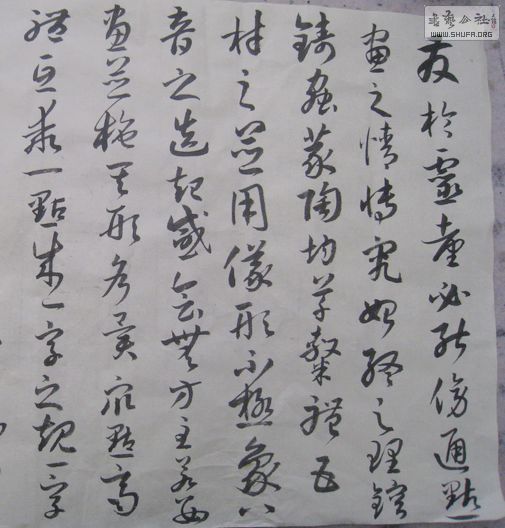 於靈臺必能傍通點
畫之情博究始終之理鎔
鑄蟲篆陶均草隸體五
材之並用儀形不極象八
音之迭起感會無方至若數
畫並施其形各異眾點齊
體互乖一點成一字之規一字
書藝公社
WWW.SHUFA.ORG